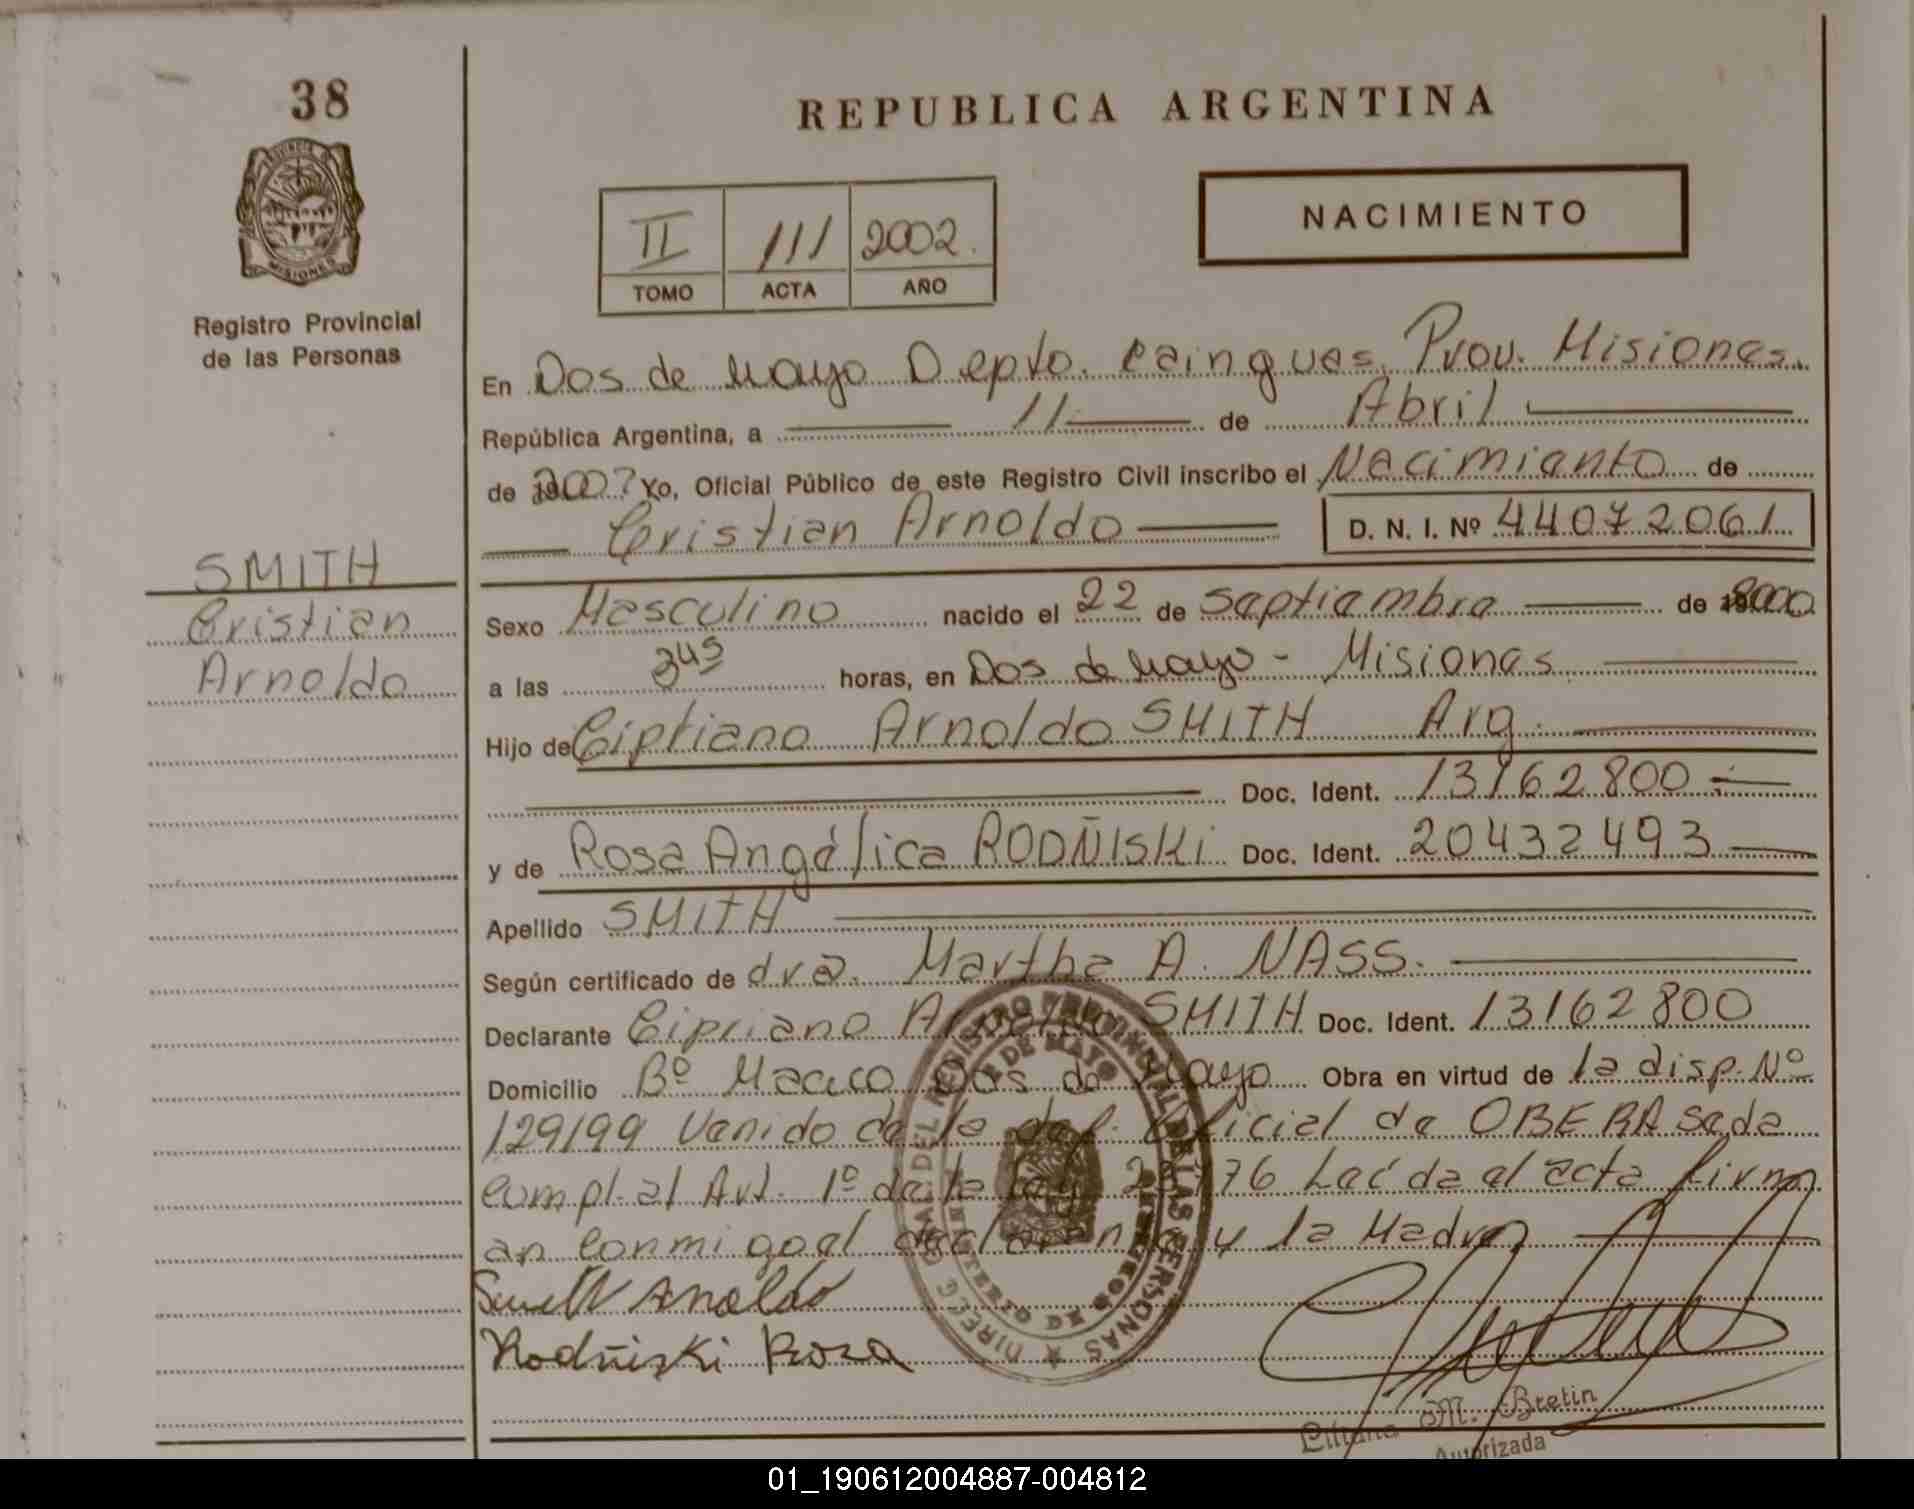 38
REPUBLICA ARGENTINA
PROVINCIA DE MISIONES
Registro Provincial
de las Personas
II 111 2002.
TOMO ACTA AÑO
NACIMIENTO
En Dos de Mayo Depto. Cainguas, Prov. Misiones.
República Argentina, a 11 de Abril
de Yo, Oficial Público de este Registro Civil inscribo el Nacimiento de
Cristian Arnoldo D. N. I. Nº 44072061
SMITH
Cristian
Arnoldo
Sexo Masculino nacido el 22 de Septiembre de 2000
a las 345 horas, en Dos de Mayo - Misiones
Hijo de Cipriano Arnoldo SMITH Arg.
Doc. Ident. 13162800
y de Rosa Angélica RODÑISKi Doc. Ident. 20432493
Apellido SMITH
Según certificado de dra. Martha A. NASS.
Declarante Cipriano SMITH Doc. Ident. 13162800
Domicilio Bº Dos de Mayo Obra en virtud de la disp. Nº
129/99 Venido de la Oficial de OBERA Seda
Cumpl. al Art. 1º de la Ley Leída el acta firm
an Conmigo el declarante y la Madre
Arnoldo
Rodñiski Rosa
DIREC. GRAL. DEL REGISTRO PROVINCIAL DE LAS PERSONAS
2 DE MAYO
MINISTERIO DE GOBIERNO
Liliana M. Bretin
Autorizada
01_190612004887-004812